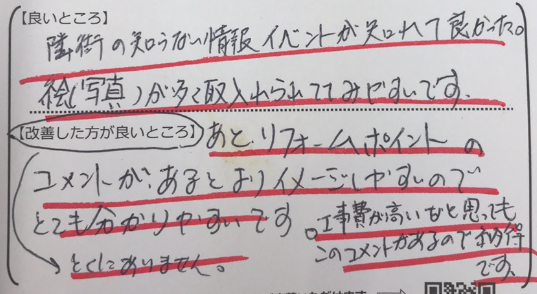 【良いところ】
隣街の知らない情報イベントが知れて良かった。
絵(写真)が多く取入れられててみやすいです。
【改善した方が良いところ】 あと、リフォームポイントの
コメントが、あるとよりイメージしやすいので
とても分かりやすいです。
工事費が高いなと思っても
このコメントがあるので納得
です。
とくにありません。